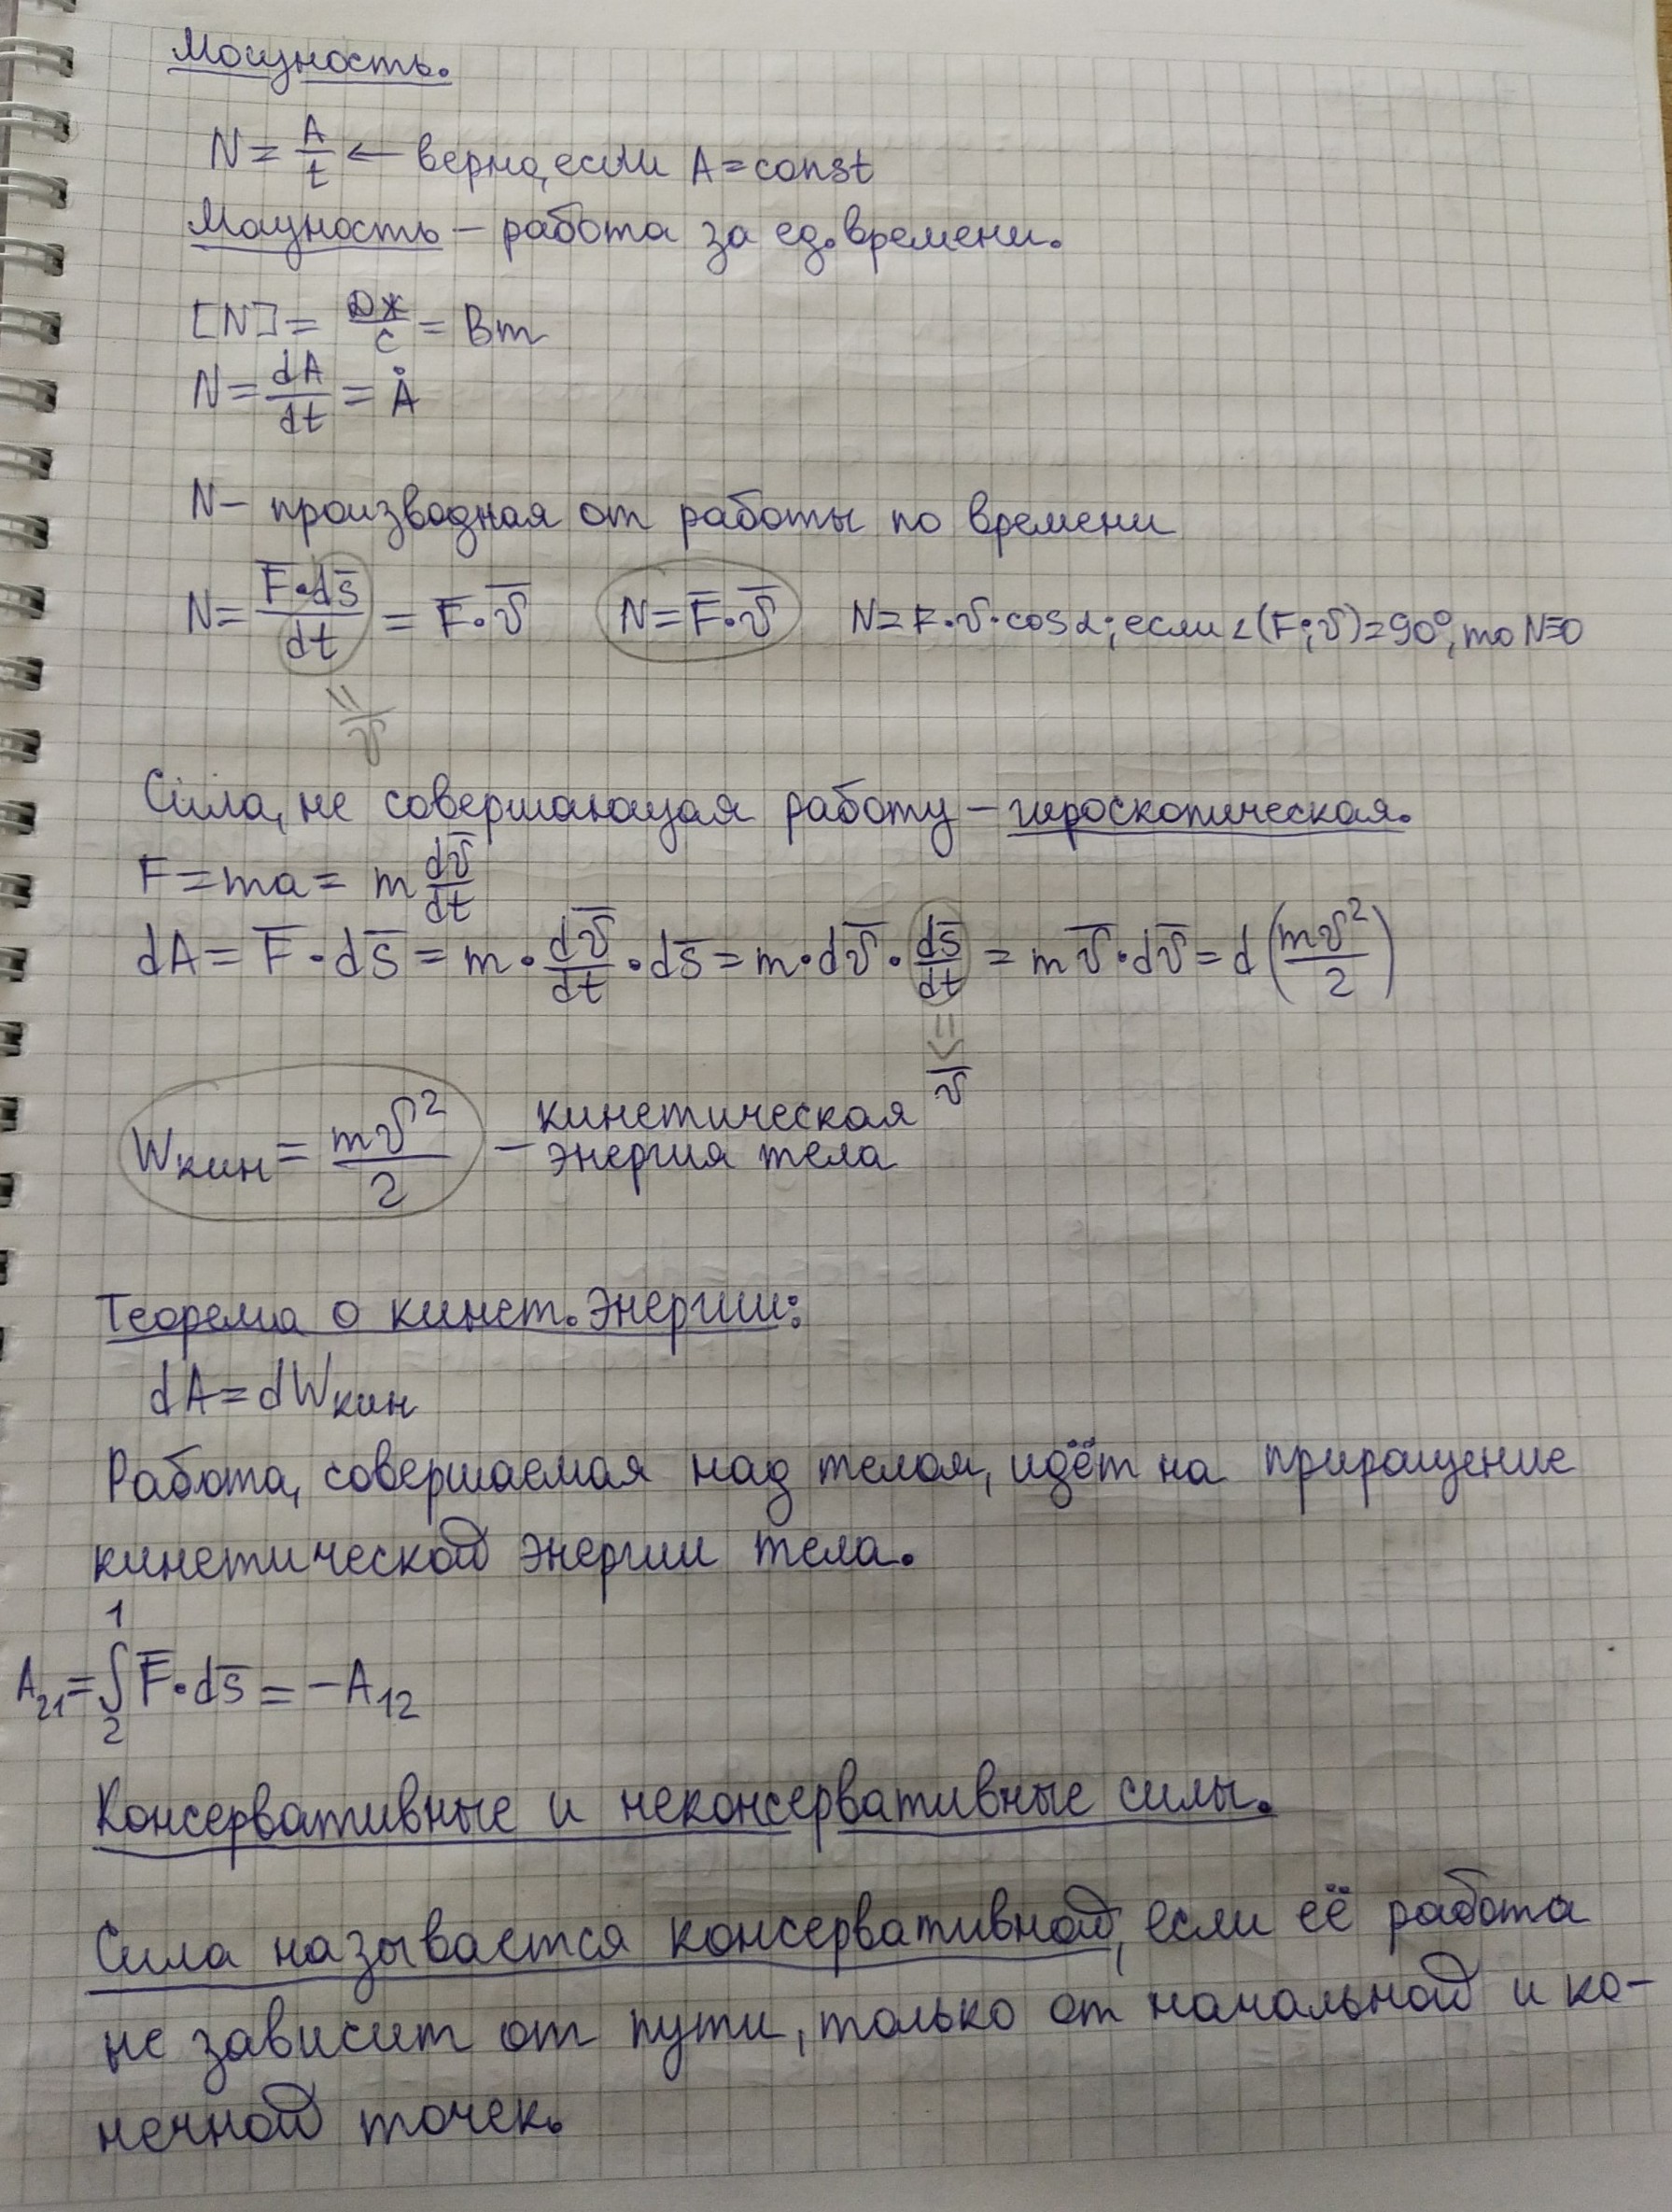 Мощность.
N = A/t ← верно, если A = const
Мощность – работа за ед. времени.
[N] = Дж/с = Вт
N = dA/dt = Ȧ
N – производная от работы по времени
N = F̅·ds̅/dt = F̅·v̅   N = F̅·v̅   N = F·v·cosα; если ∠(F;v) = 90°, то N=0
= v̅
Сила, не совершающая работу – гироскопическая.
F = ma = m dv̅/dt
dA = F̅·ds̅ = m·dv̅/dt·ds̅ = m·dv̅·ds̅/dt = mv̅·dv̅ = d(mv²/2)
= v̅
Wкин = mv²/2 – кинетическая
энергия тела
Теорема о кинет. энергии:
dA = dWкин
Работа, совершаемая над телом, идёт на приращение
кинетической энергии тела.
A₂₁ = ∫₂¹ F̅·ds̅ = –A₁₂
Консервативные и неконсервативные силы.
Сила называется консервативной, если её работа
не зависит от пути, только от начальной и ко-
нечной точек.